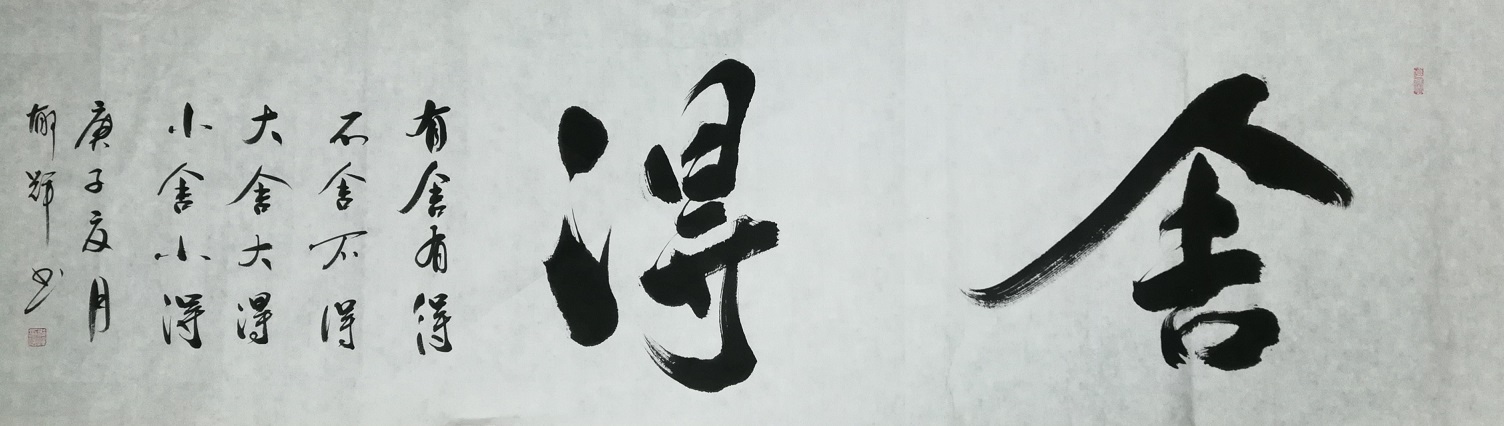 舍得
有舍有得
不舍不得
大舍大得
小舍小得
庚子夏月
郁辉书